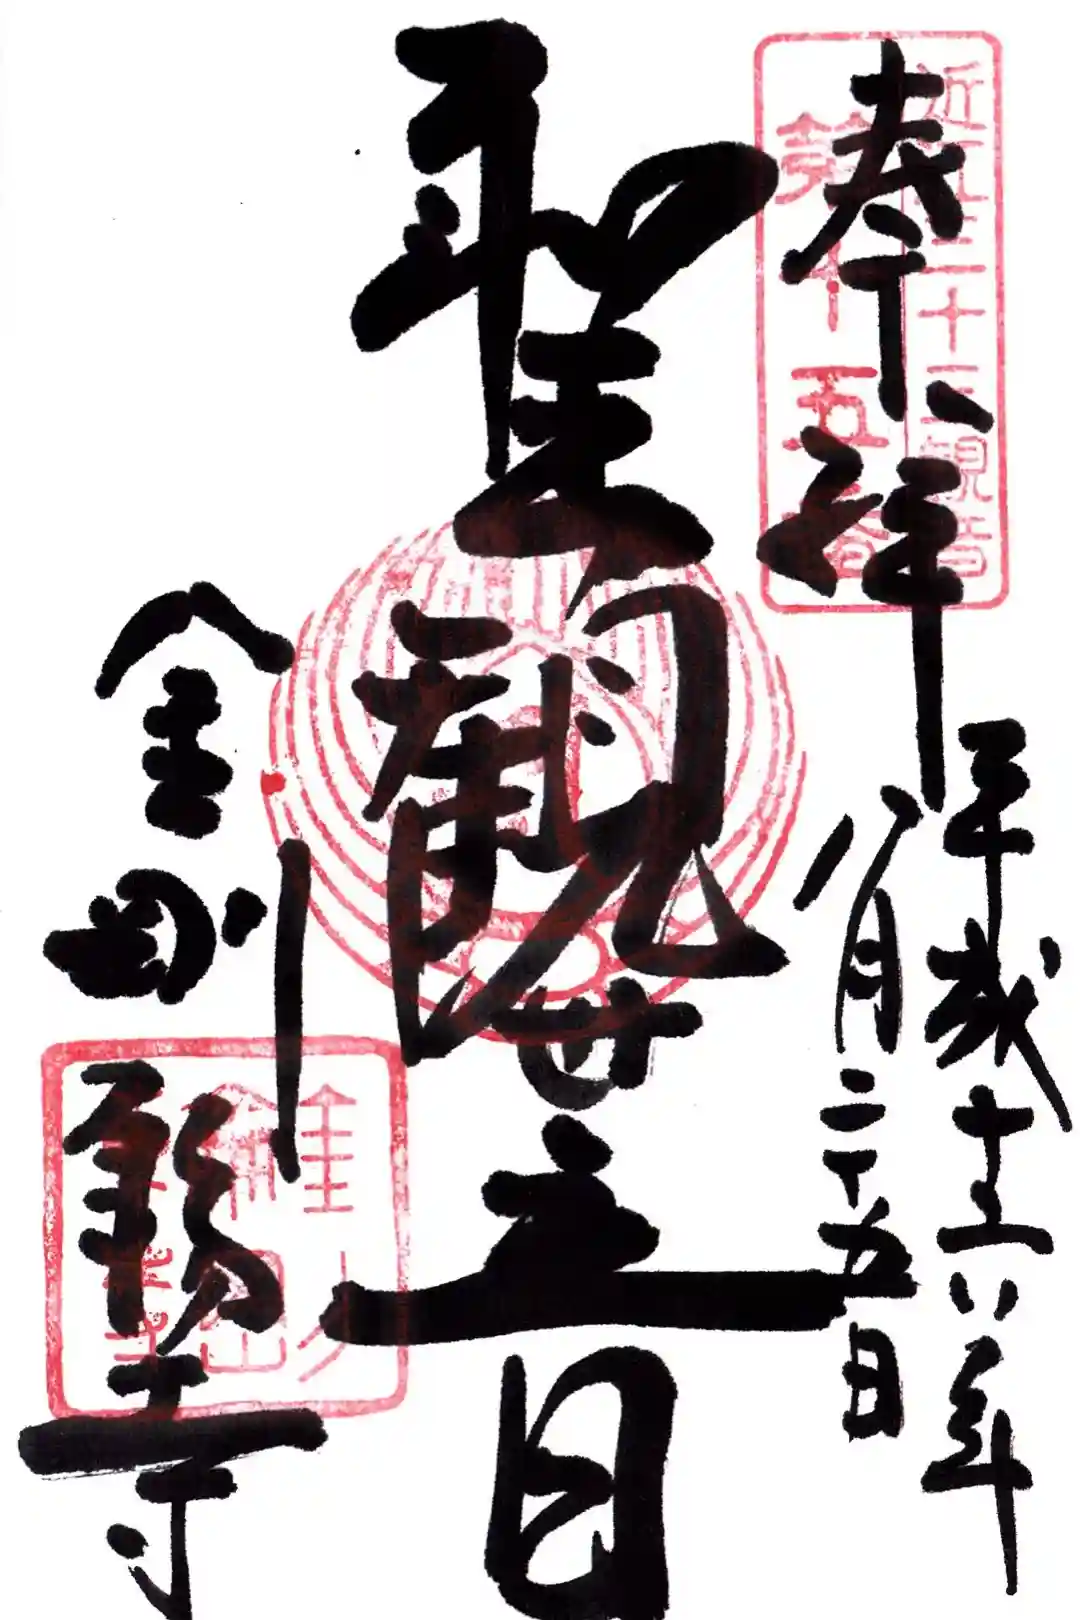 近江三十三観音
第十五番
奉拝
平成十六年
八月二十五日
聖観世音
金剛輪寺